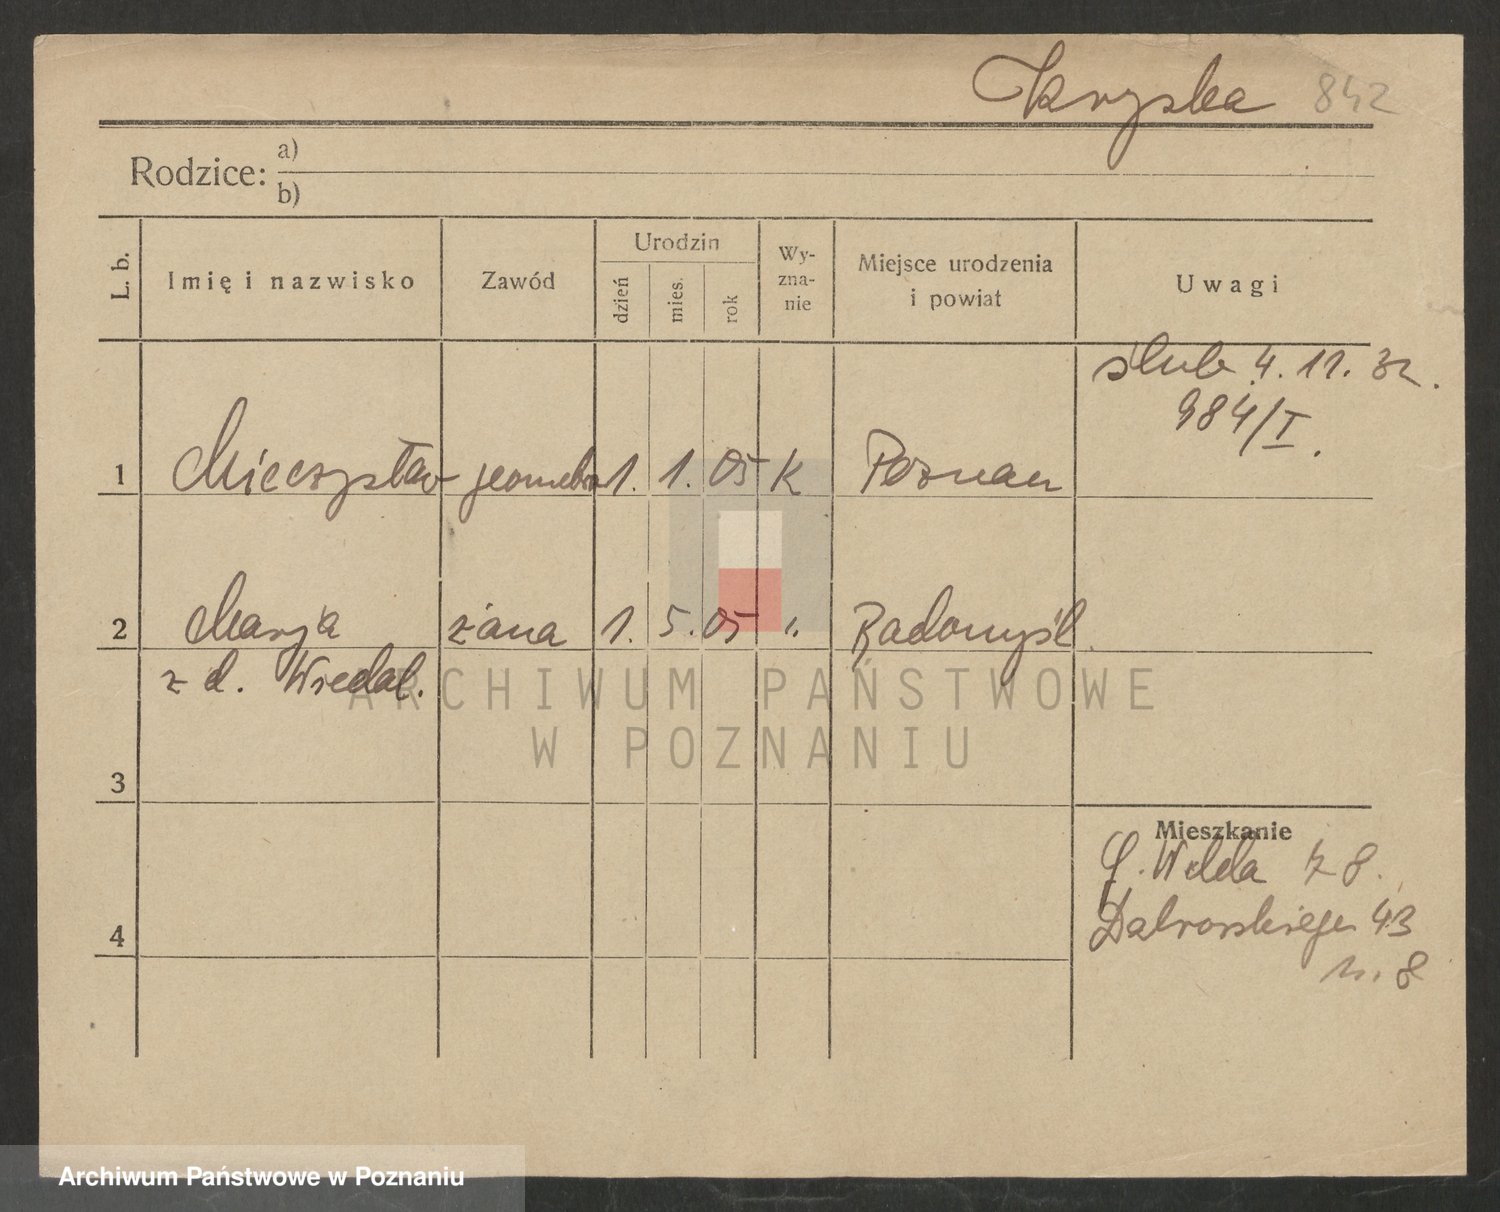 Skryska 842
Rodzice: a)
b)
L. b. Imię i nazwisko Zawód Urodzin dzień mies. rok Wyznanie Miejsce urodzenia i powiat Uwagi
ślub 4. 11. 32.
984/I.
1 Mieczysław geometra 1. 1. 05 K Poznań
2 Marja żona 1. 5. 05 Radomyśl
z d. Wiedal.
ARCHIWUM PAŃSTWOWE
W POZNANIU
3
Mieszkanie
G. Wilda 78.
4
Dąbrowskiego 43
m. 8
Archiwum Państwowe w Poznaniu